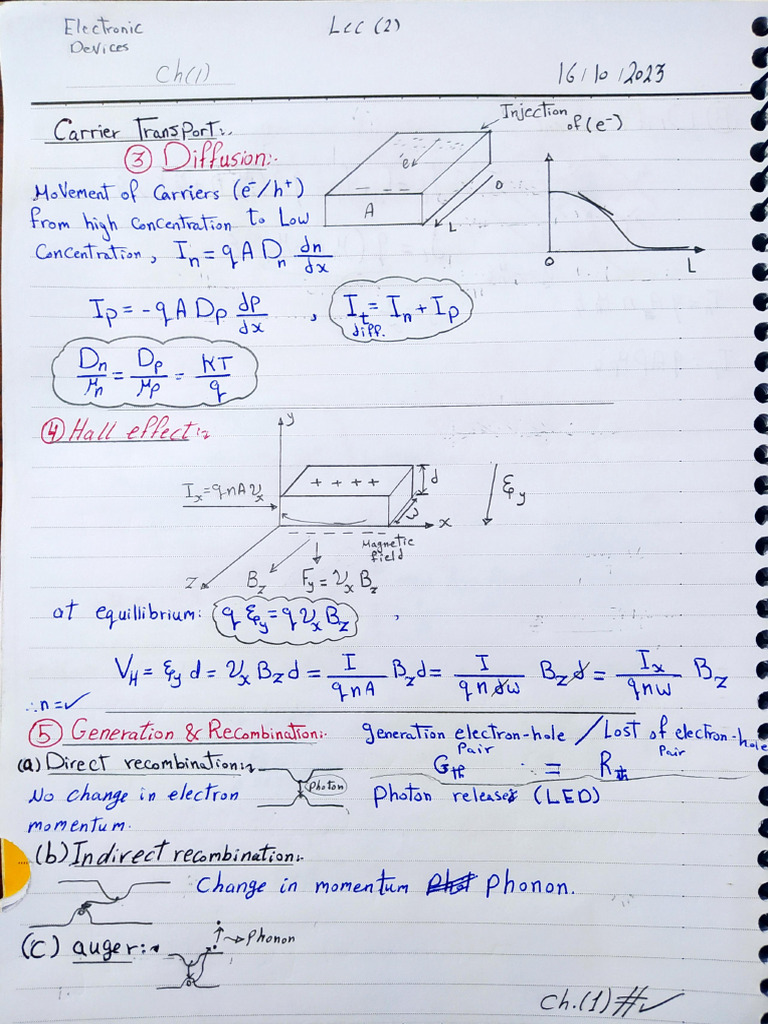 Electronic
Devices
Lec (2)
Ch(1)
16/10/2023
Carrier Transport:-
③ Diffusion:-
Injection
of (e⁻)
e⁻
A
L
0
0
L
Movement of Carriers (e⁻/h⁺)
from high Concentration to Low
Concentration, Iₙ = q A Dₙ dn/dx
Iₚ = -q A Dₚ dp/dx , Iₜ = Iₙ + Iₚ
diff.
Dₙ/μₙ = Dₚ/μₚ = KT/q
④ Hall effect:-
y
Iₓ = qnA𝒱ₓ
+ + + +
d
w
x
z
ξ_y
Magnetic
field
B_z
F_y = 𝒱ₓ B_z
at equillibrium: q ξ_y = q 𝒱ₓ B_z ,
V_H = ξ_y d = 𝒱ₓ B_z d = I/(qnA) B_z d = I/(qndw) B_z d = Iₓ/(qnw) B_z
∴ n = ✓
⑤ Generation & Recombination:- generation electron-hole / Lost of electron-hole
Pair Pair
(a) Direct recombination:- G_th = R_th
Photon
No change in electron Photon releases (LED)
momentum.
(b) Indirect recombination:-
Change in momentum phonon.
(C) auger:-
→ Phonon
Ch.(1) # ✓